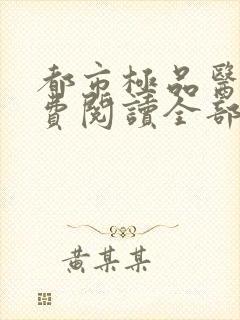 都市極品醫
費閱讀全部
黃某某